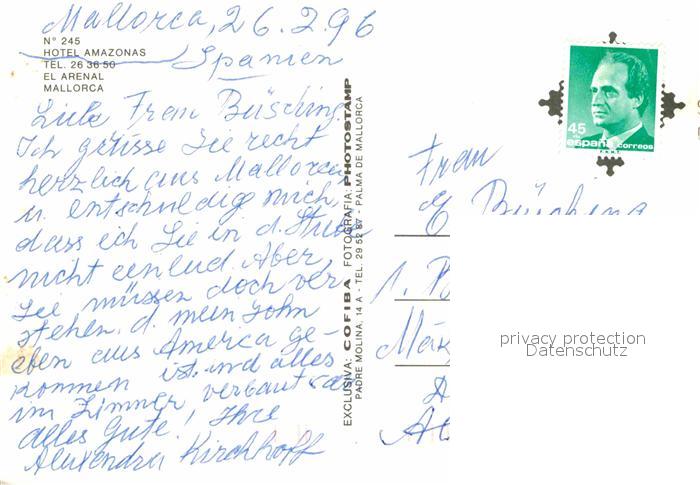 Mallorca, 26.2.96
Spanien
N° 245
HOTEL AMAZONAS
TEL. 26 36 50
EL ARENAL
MALLORCA
Liebe Frau Büsching
Ich grüsse Sie recht
herzlich aus Mallorca
u. entschuldig mich,
dass ich Sie in d. Stube
nicht einlud. Aber
Sie müssen doch ver
stehen. d. mein Sohn
eben aus America ge-
kommen ist. und alles
im Zimmer verbaut war
alles Gute! Ihre
Alexandra Kirchhoff
EXCLUSIVA: COFIBA FOTOGRAFIA: PHOTOSTAMP
PADRE MOLINA, 14 A - TEL. 29 52 87 - PALMA DE MALLORCA
45
PTA
españa correos
F.N.M.T.
Frau
E Büsching
1.
privacy protection
Datenschutz